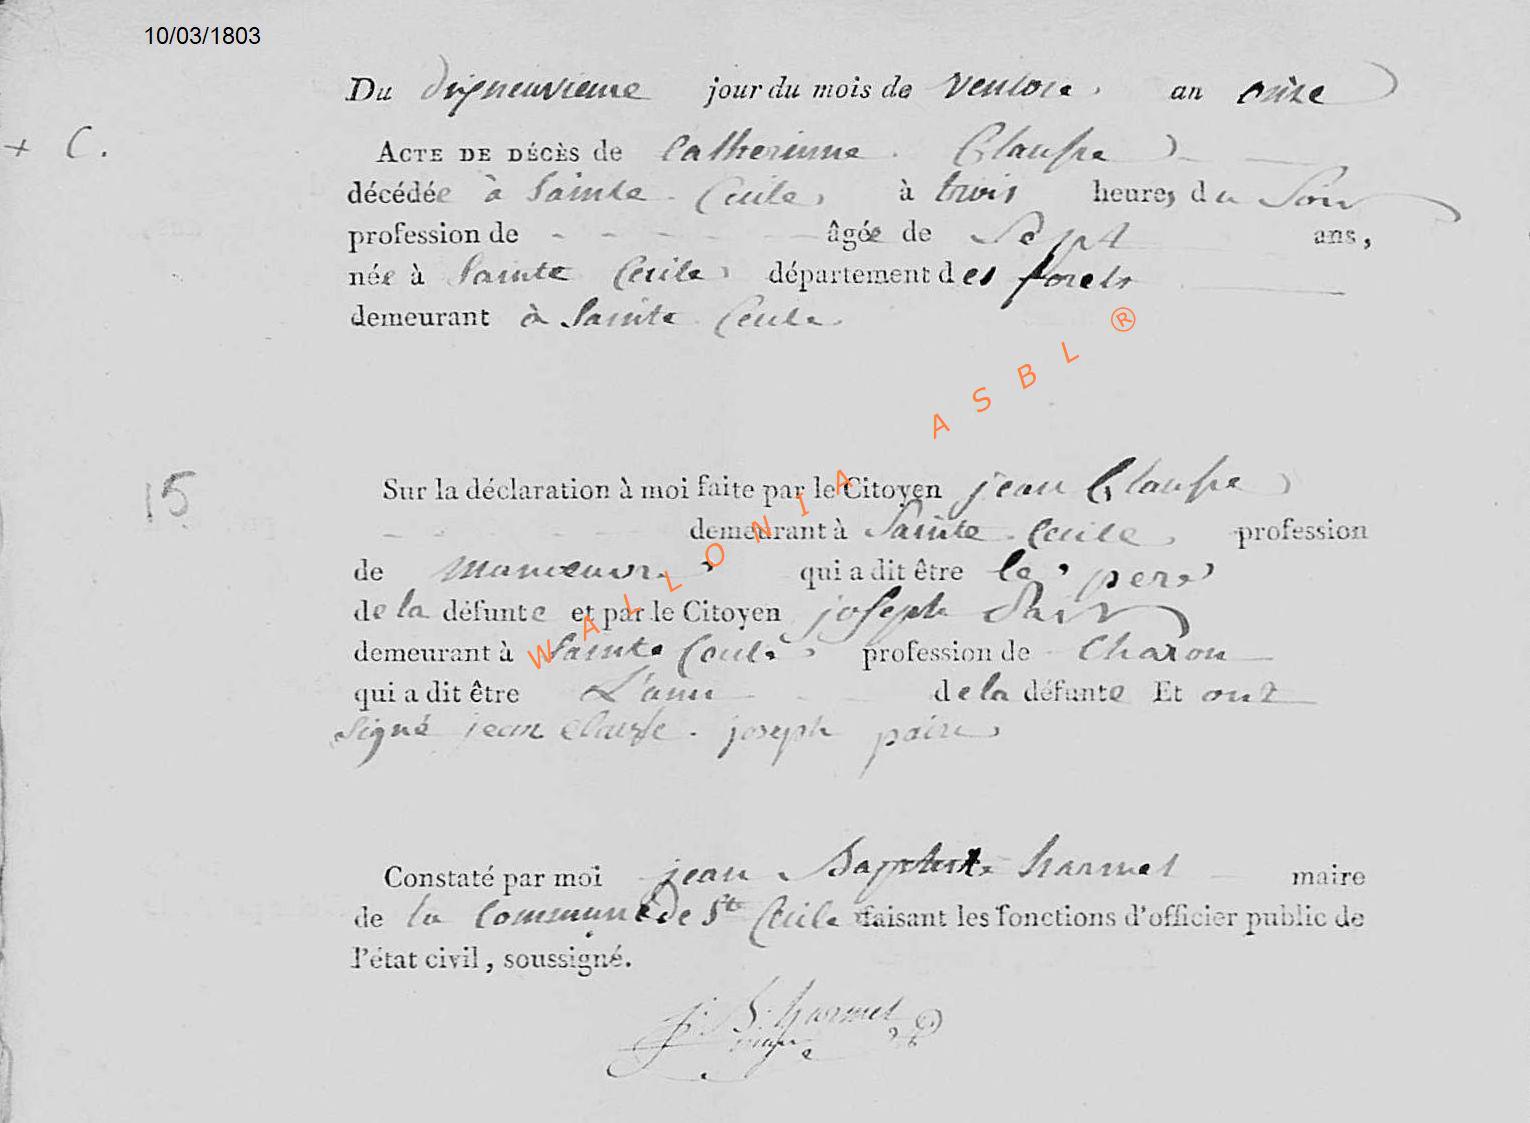 10/03/1803
Du dixneuvieme jour du mois de ventose an onze
+ C.
ACTE DE DÉCÈS de Catherinne Clausse
décédée à Sainte Cecile à trois heures du Soir
profession de - - - - - âgée de Sept ans,
née à Sainte Cecile département des forets
demeurant à Sainte Cecile
15
Sur la déclaration à moi faite par le Citoyen jean Clausse
demeurant à Sainte Cecile profession
de manoeuvre qui a dit être le pere
de la défunte et par le Citoyen joseph
demeurant à Sainte Cecile profession de Charon
qui a dit être L'ami de la défunte Et ont
signé jean clausse joseph
Constaté par moi jean Baptiste harmel maire
de la Commune de Ste Cecile faisant les fonctions d'officier public de
l'état civil, soussigné.
J: B: harmel
maire
WALLONIA ASBL ®